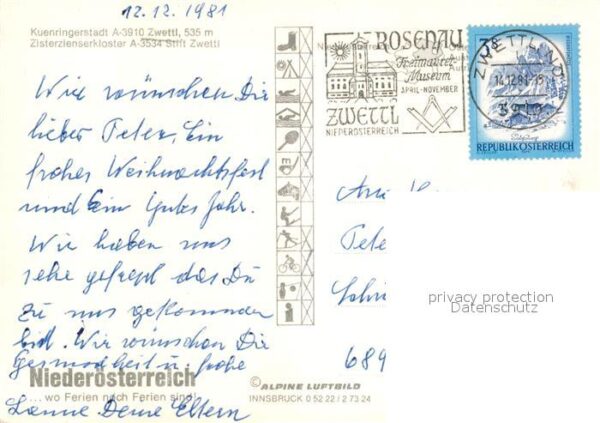 12.12.1981
Kuenringerstadt A-3910 Zwettl, 535 m
Zisterzienserkloster A-3534 Stift Zwettl
Wir wünschen Dir
lieber Peter, Ein
frohes Weihnachtsfest
und Ein Gutes Jahr.
Wir haben uns
sehr gefreut das Du
zu uns gekommen
bist. Wir wünschen Dir
Gesundheit u. frohe
Laune Deine Eltern
Niederösterreich
... wo Ferien noch Ferien sind
ROSENAU
Freimaurer
Museum
APRIL-NOVEMBER
ZWETTL
NIEDERÖSTERREICH
ZWETTL, NÖ
14.12.81-15
3910
7s
REPUBLIK ÖSTERREICH
An
Pete
Schri
689
privacy protection
Datenschutz
© ALPINE LUFTBILD
INNSBRUCK 0 52 22 / 2 73 24